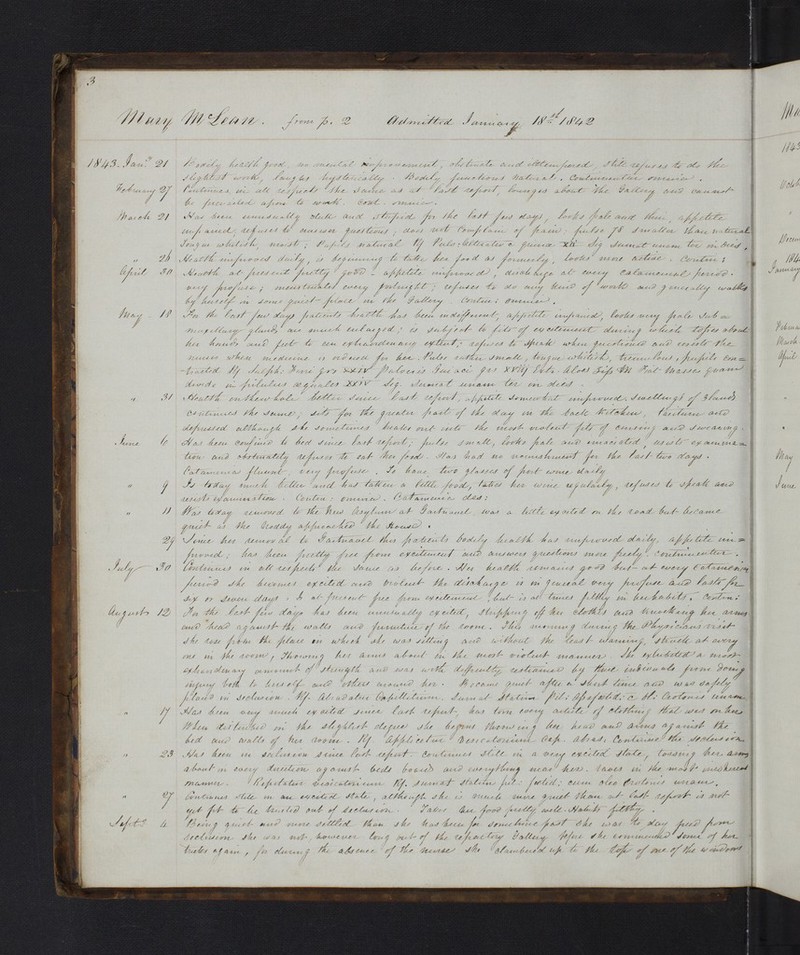 3
Mary McLean. from p. 2 Admitted January 18th 1842
1843. Jany 21 Bodily health good, no mental improvement, obstinate and illtempered, still refuses to do the
slightest work, laughs hysterically. Bodily functions natural. Continuentur omnia.
February 27 Continues in all respects the same as at last report, lounges about the Gallery and cannot
be prevailed upon to work. Cont. omnia.
March 21 Has been unusually dull and stupid for the last few days, looks pale and thin, appetite
impaired, refuses to answer questions, does not complain of pain; pulse 78 smaller than natural
Tongue whitish, moist; Pupils natural
" 28 Health improves daily, is beginning to take her food as formerly, looks more active. Contin:
April 30 Health at present pretty good. appetite improved, discharge at every catamenial period
very profuse; menstruates every fortnight; refuses to do any kind of work and generally walks
by herself in some quiet place in the Gallery. Contin: omnia.
May 18 For the last few days patients health has been indifferent, appetite impaired, looks very pale Sub
maxillary glands are much enlarged; is subject to fits of excitement during which tosses about
her hands and feet to an extraordinary extent; refuses to speak when questioned and resists the
nurses when medicine is ordered for her. Pulse rather small, tongue whitish, tremulous, pupils con=
=tracted
divide in pilulas aequales XXIV Sig. Sumat unam ter in dies.
" 31 Health on the whole better since last report, appetite somewhat improved. Swellings of glands
continues the same, sits for the greater part of the day in the back kitchen, taciturn and
depressed although she sometimes breaks out into the most violent fits of cursing and swearing.
June 6 Has been confined to bed since last report; pulse small, looks pale and emaciated, resists examina=
tion and obstinately refuses to eat her food. Has had no nourishment for the last two days.
Catamenia fluunt, very profuse. To have two glasses of port wine daily
" 9 Is today much better and has taken a little food, takes her wine regularly, refuses to speak and
resists examination. Contin: omnia. Catamenia des:
" 11 Was today removed to the New Asylum at Gartnavel, was a little excited on the road but became
quiet as the Noddy approached the House.
29 Since her removal to Gartnavel this patients bodily health has improved daily, appetite im=
proved; has been pretty free from excitement and answers questions more freely. Continuentur.
July 30 Continues in all respects the same as before. Her health remains good but at every Catamenial
period she becomes excited and violent the discharge is in general very profuse and lasts for
six or seven days. Is at present free from excitement, but is at times filthy in her habits. Contin:
August 12 For the last few days has been unusually excited, stripping off her clothes and knocking her arms
and head against the walls and furniture of the room. This morning during the Physicians visit
she rose from the place on which she was sitting and without the least warning, struck at every
one in the room, throwing her arms about in the most violent manner. She exhibited a most
extraordinary amount of strength and was with difficulty restrained by three individuals from doing
injury both to herself and others around her. Became quiet after a short time and was safely
placed in seclusion. Abradatur Capillitium. Sumat statim
" 17 Has been very much excited since last report, has torn every article of clothing that was on her
When disturbed in the slightest degree she begins throwing her head and arms against the
bed and walls of her room. Continue the seclusion
" 23 Has been in seclusion since last report. continues still in a very excited state, tossing her arms
about in every direction against beds boards and everything near her. raves in the most incoherent
manner. Repetatur
" 27 Continues still in an excited state, although she is much more quiet than at last report is not
yet fit to be trusted out of seclusion. Takes her food pretty well. Habits filthy.
Septr 4 Being quiet and more settled than she has been for sometime past she was to day freed from
seclusion she was not however long out of the refractory Gallery before she commenced some of her
tricks again, for during the absence of the nurse she clambered up to the top of one of the windows